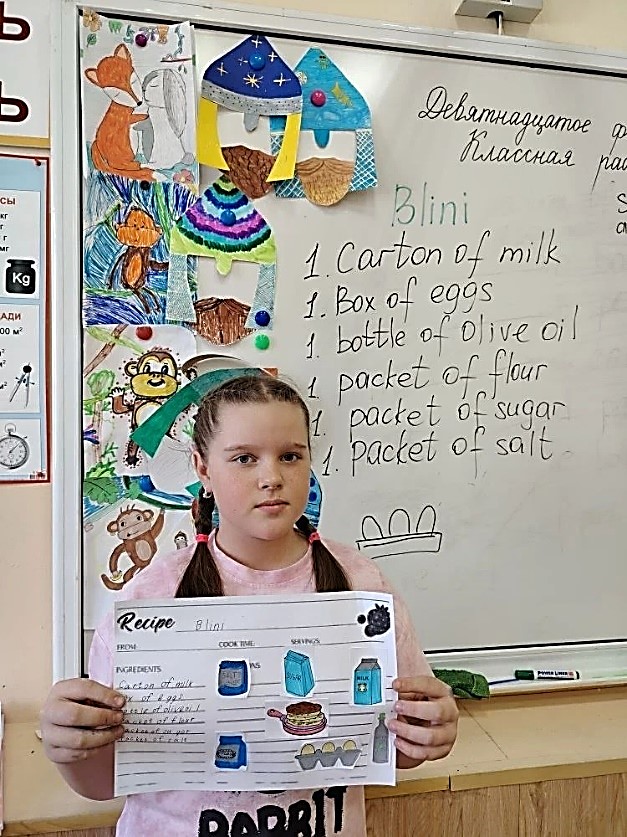 Ь
Ь
кг
г
мг
Kg
00 м²
м²
м²
Девятнадцатое ф
Классная ра
Blini
1. Carton of milk
1. Box of eggs
1. bottle of olive oil
1 packet of flour
1. packet of sugar
1. packet of salt
POWER LINER
Recipe Blini
FROM:
COOK TIME:
SERVINGS:
INGREDIENTS
Carton of milk
of eggs
of olive oil
of flour
of salt
SUGAR
MILK
RABBIT